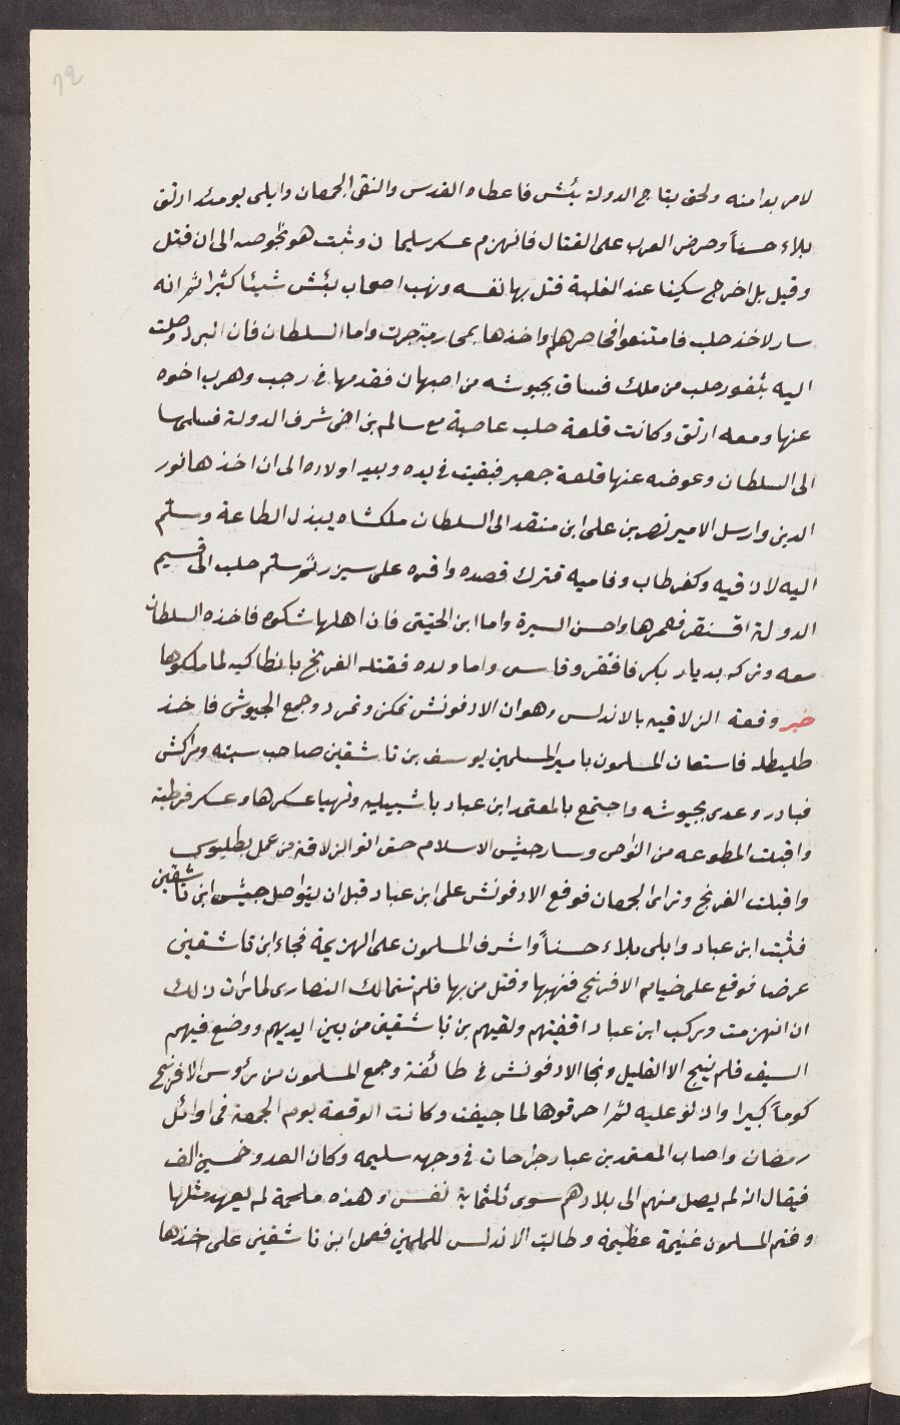 لامر بدا منه ولحق بتاج الدولة بتش فاعطاه القدس والتقى الجمعان وابلى يومئذ ارتق
بلاء حسناً وحرض العرب على القتال فانهزم عسكر سليمان وثبت هو بخوصه الى ان قتل
وقيل بل اخرج سكينا عند الغلبة قتل بها نفسه ونهب اصحاب بتش شيئا كثيرا ثم انه
سار لاخذ حلب فامتنعوا فحاصرهم واخذها بمحاربة جرت واما السلطان فان البرد وصلت
اليه بثغور حلب من ملك فساق بجيوشه من اصبهان فقدمها في رجب وهرب اخوه
عنها ومعه ارتق وكانت قلعة حلب عاصية مع سالم بن اخى شرف الدولة فسلمها
الى السلطان وعوضه عنها قلعة جعبر فبقيت في يده وبيد اولاده الى ان اخذها نور
الدين وارسل الامير نصر بن على ابن منقد الى السلطان ملكشاه يبذل الطاعة وسلم
اليه لاذقيه وكفر طاب وفاميه فترك قصده واقره على سيزر ثم سلم حلب الى قسيم
الدولة اقسنقر فعمرها واحسن السيرة واما ابن الحتيتى فان اهلها شكوه فاخذه السلطان
معه وتركه بديار بكر فافتقر وقاسى واما ولده فقتله الفرنج بانطاكيه لما ملكوها
خبر وقعة الزلاقيه بالاندلس وهو ان الادفونش تمكن وتمرد وجمع الجيوش فاخذ
طليطله فاستعان المسلمون بامير المسلمين يوسف بن تاشفين صاحب سبته ومراكش
فبادر وعدى بجيوشه واجتمع بالمعتمد ابن عباد باشبيليه وتهيا عسكرها وعسكر قرطبه
واقبلت المطوعه من النواحى وسار جيش الاسلام حتى اتو الزلاقه من عمل بطليوس
واقبلت الفرنج وتراى الجمعان فوقع الادفونش على ابن عباد قبل ان يتواصل جيش ابن تاشفين
فثبت ابن عباد وابلى بلاء حسناً واشرف المسلمون على الهزيمة فجاء ابن تاشفين
عرضا فوقع على خيام الافرنج فنهبها وقتل من بها فلم تتمالك النصارى لما رات ذلك
ان انهزمت وركب ابن عباد اقفيتهم ولقيهم بن تاشفين من بين ايديهم ووضع فيهم
السيف فلم ينج الا القليل ونجا الادفونش في طائفة وجمع المسلمون من رئوس الافرنج
كوماً كبيرا واذنو عليه ثم احرقوها لما جيفت وكانت الوقعة يوم الجمعة فى اوائل
رمضان واصاب المعتمد بن عباد جراحات في وجهه سليمه وكان العدو خمسين الف
فيقال انه لم يصل منهم الى بلادهم سوى ثلثماية نفس وهذه ملحمة لم يعهد مثلها
وغنم المسلمون غنيمة عظيمة وطابت الاندلس للملثمين فعمل ابن تاشفين على اخذها